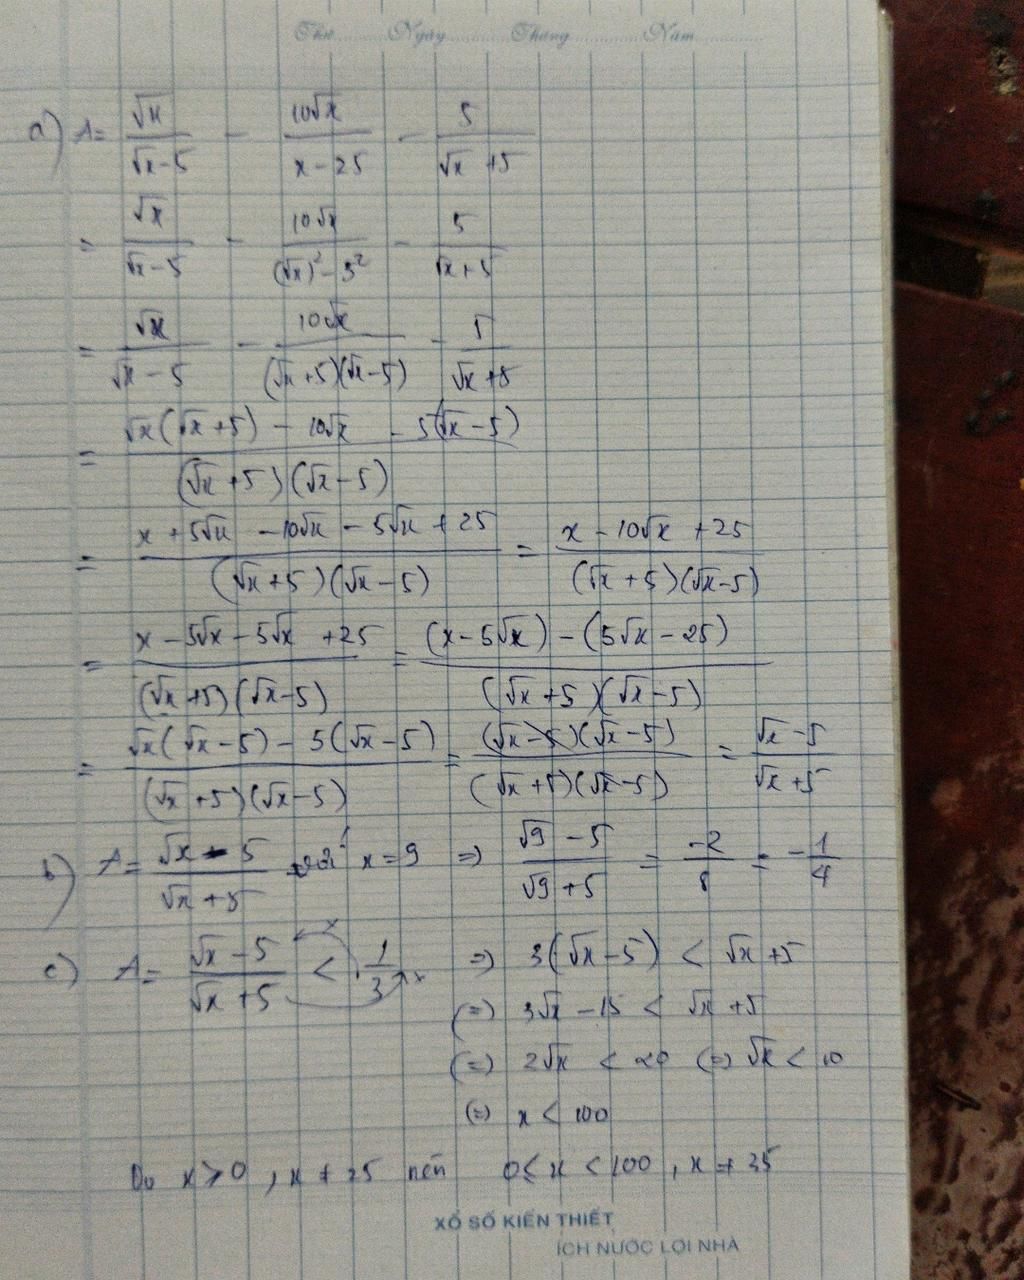 Thứ.........Ngày...........Tháng...........Năm............
a) A = √x/(√x - 5) - 10√x/(x - 25) - 5/(√x + 5)
= √x/(√x - 5) - 10√x/((√x)² - 5²) - 5/(√x + 5)
= √x/(√x - 5) - 10√x/((√x + 5)(√x - 5)) - 5/(√x + 5)
= (√x(√x + 5) - 10√x - 5(√x - 5))/((√x + 5)(√x - 5))
= (x + 5√x - 10√x - 5√x + 25)/((√x + 5)(√x - 5)) = (x - 10√x + 25)/((√x + 5)(√x - 5))
= (x - 5√x - 5√x + 25)/((√x + 5)(√x - 5)) = ((x - 5√x) - (5√x - 25))/((√x + 5)(√x - 5))
= (√x(√x - 5) - 5(√x - 5))/((√x + 5)(√x - 5)) = ((√x - 5)(√x - 5))/((√x + 5)(√x - 5)) = (√x - 5)/(√x + 5)
b) A = (√x - 5)/(√x + 5) với x = 9 => (√9 - 5)/(√9 + 5) = -2/8 = -1/4
c) A = (√x - 5)/(√x + 5) < 1/3 => 3(√x - 5) < √x + 5
(=) 3√x - 15 < √x + 5
(=) 2√x < 20 (=) √x < 10
(=) x < 100
Do x ≥ 0, x ≠ 25 nên 0 ≤ x < 100, x ≠ 35
XỔ SỐ KIẾN THIẾT
ÍCH NƯỚC LỢI NHÀ